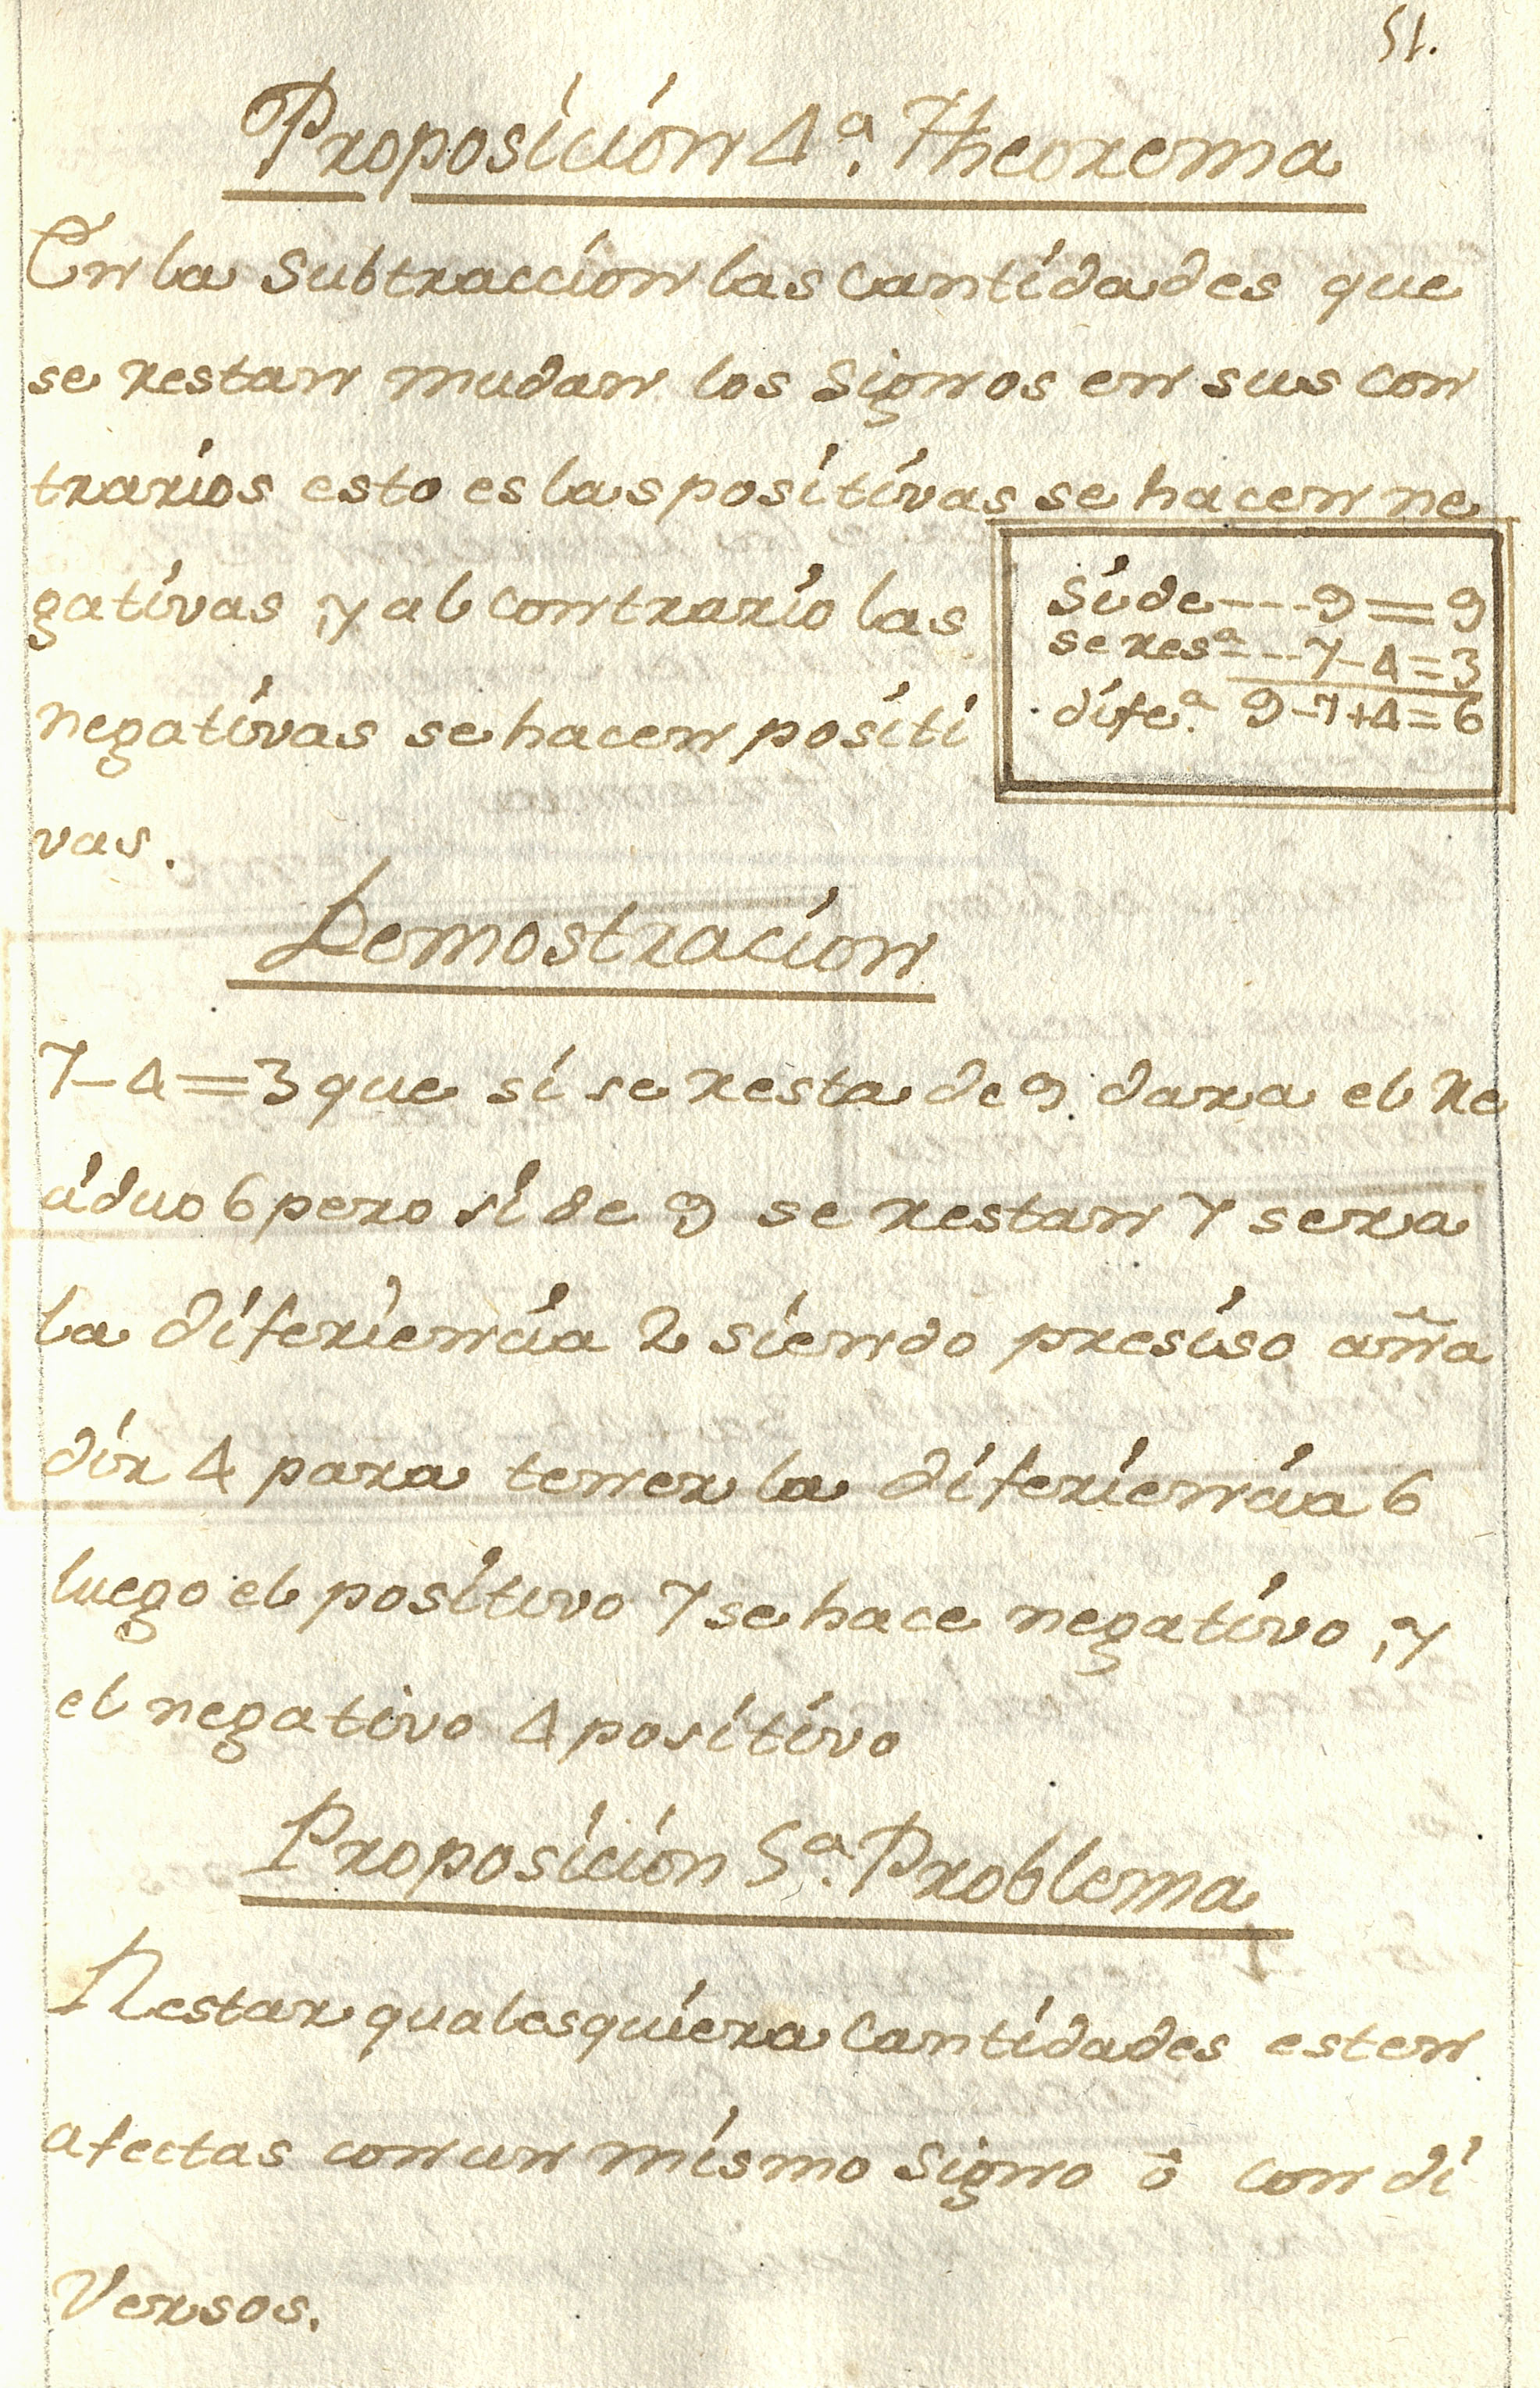 51.
Proposicion 4ª. Theorema
En la Subtraccion las Cantidades que
se restan mudan los Signos en sus con
trarios esto es las positivas se hacen ne
gativas, y al contrario las
negativas se hacen positi
vas.
Si de --- 9 = 9
se resª --- 7 - 4 = 3
difeª. 9 - 7 + 4 = 6
Demostracion
7 - 4 = 3 que si se resta de 9 dara el Re
ciduo 6 pero si de 9 se restan 7 sera
la diferiencia 2 siendo presiso aña
dir 4 para tener la diferiencia 6
luego el positivo 7 se hace negativo, y
el negativo 4 positivo
Proposicion 5ª. Problema
Restar qualesquiera Cantidades esten
afectas con un mismo Signo ô con di
Versos.